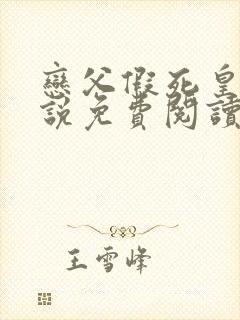 戀父假死皇
說免費閱讀
王雪峰